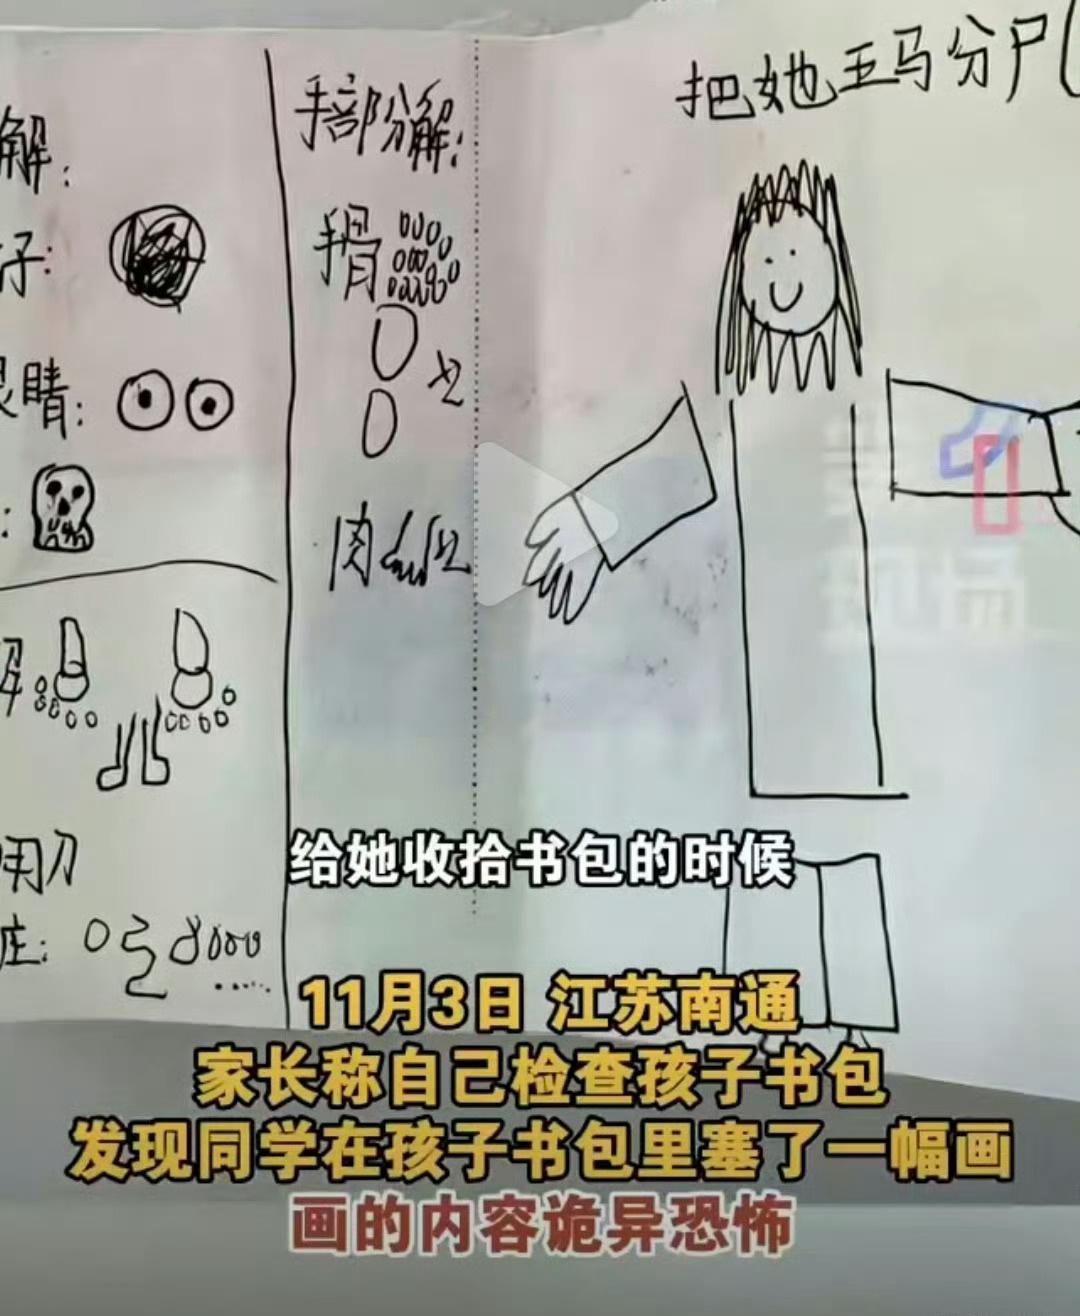 把她五马分尸(
解:
子:
眼睛:
解
用刀
手部分解:
手骨
x2
肉 x2
给她收拾书包的时候
11月3日 江苏南通
家长称自己检查孩子书包
发现同学在孩子书包里塞了一幅画
画的内容诡异恐怖